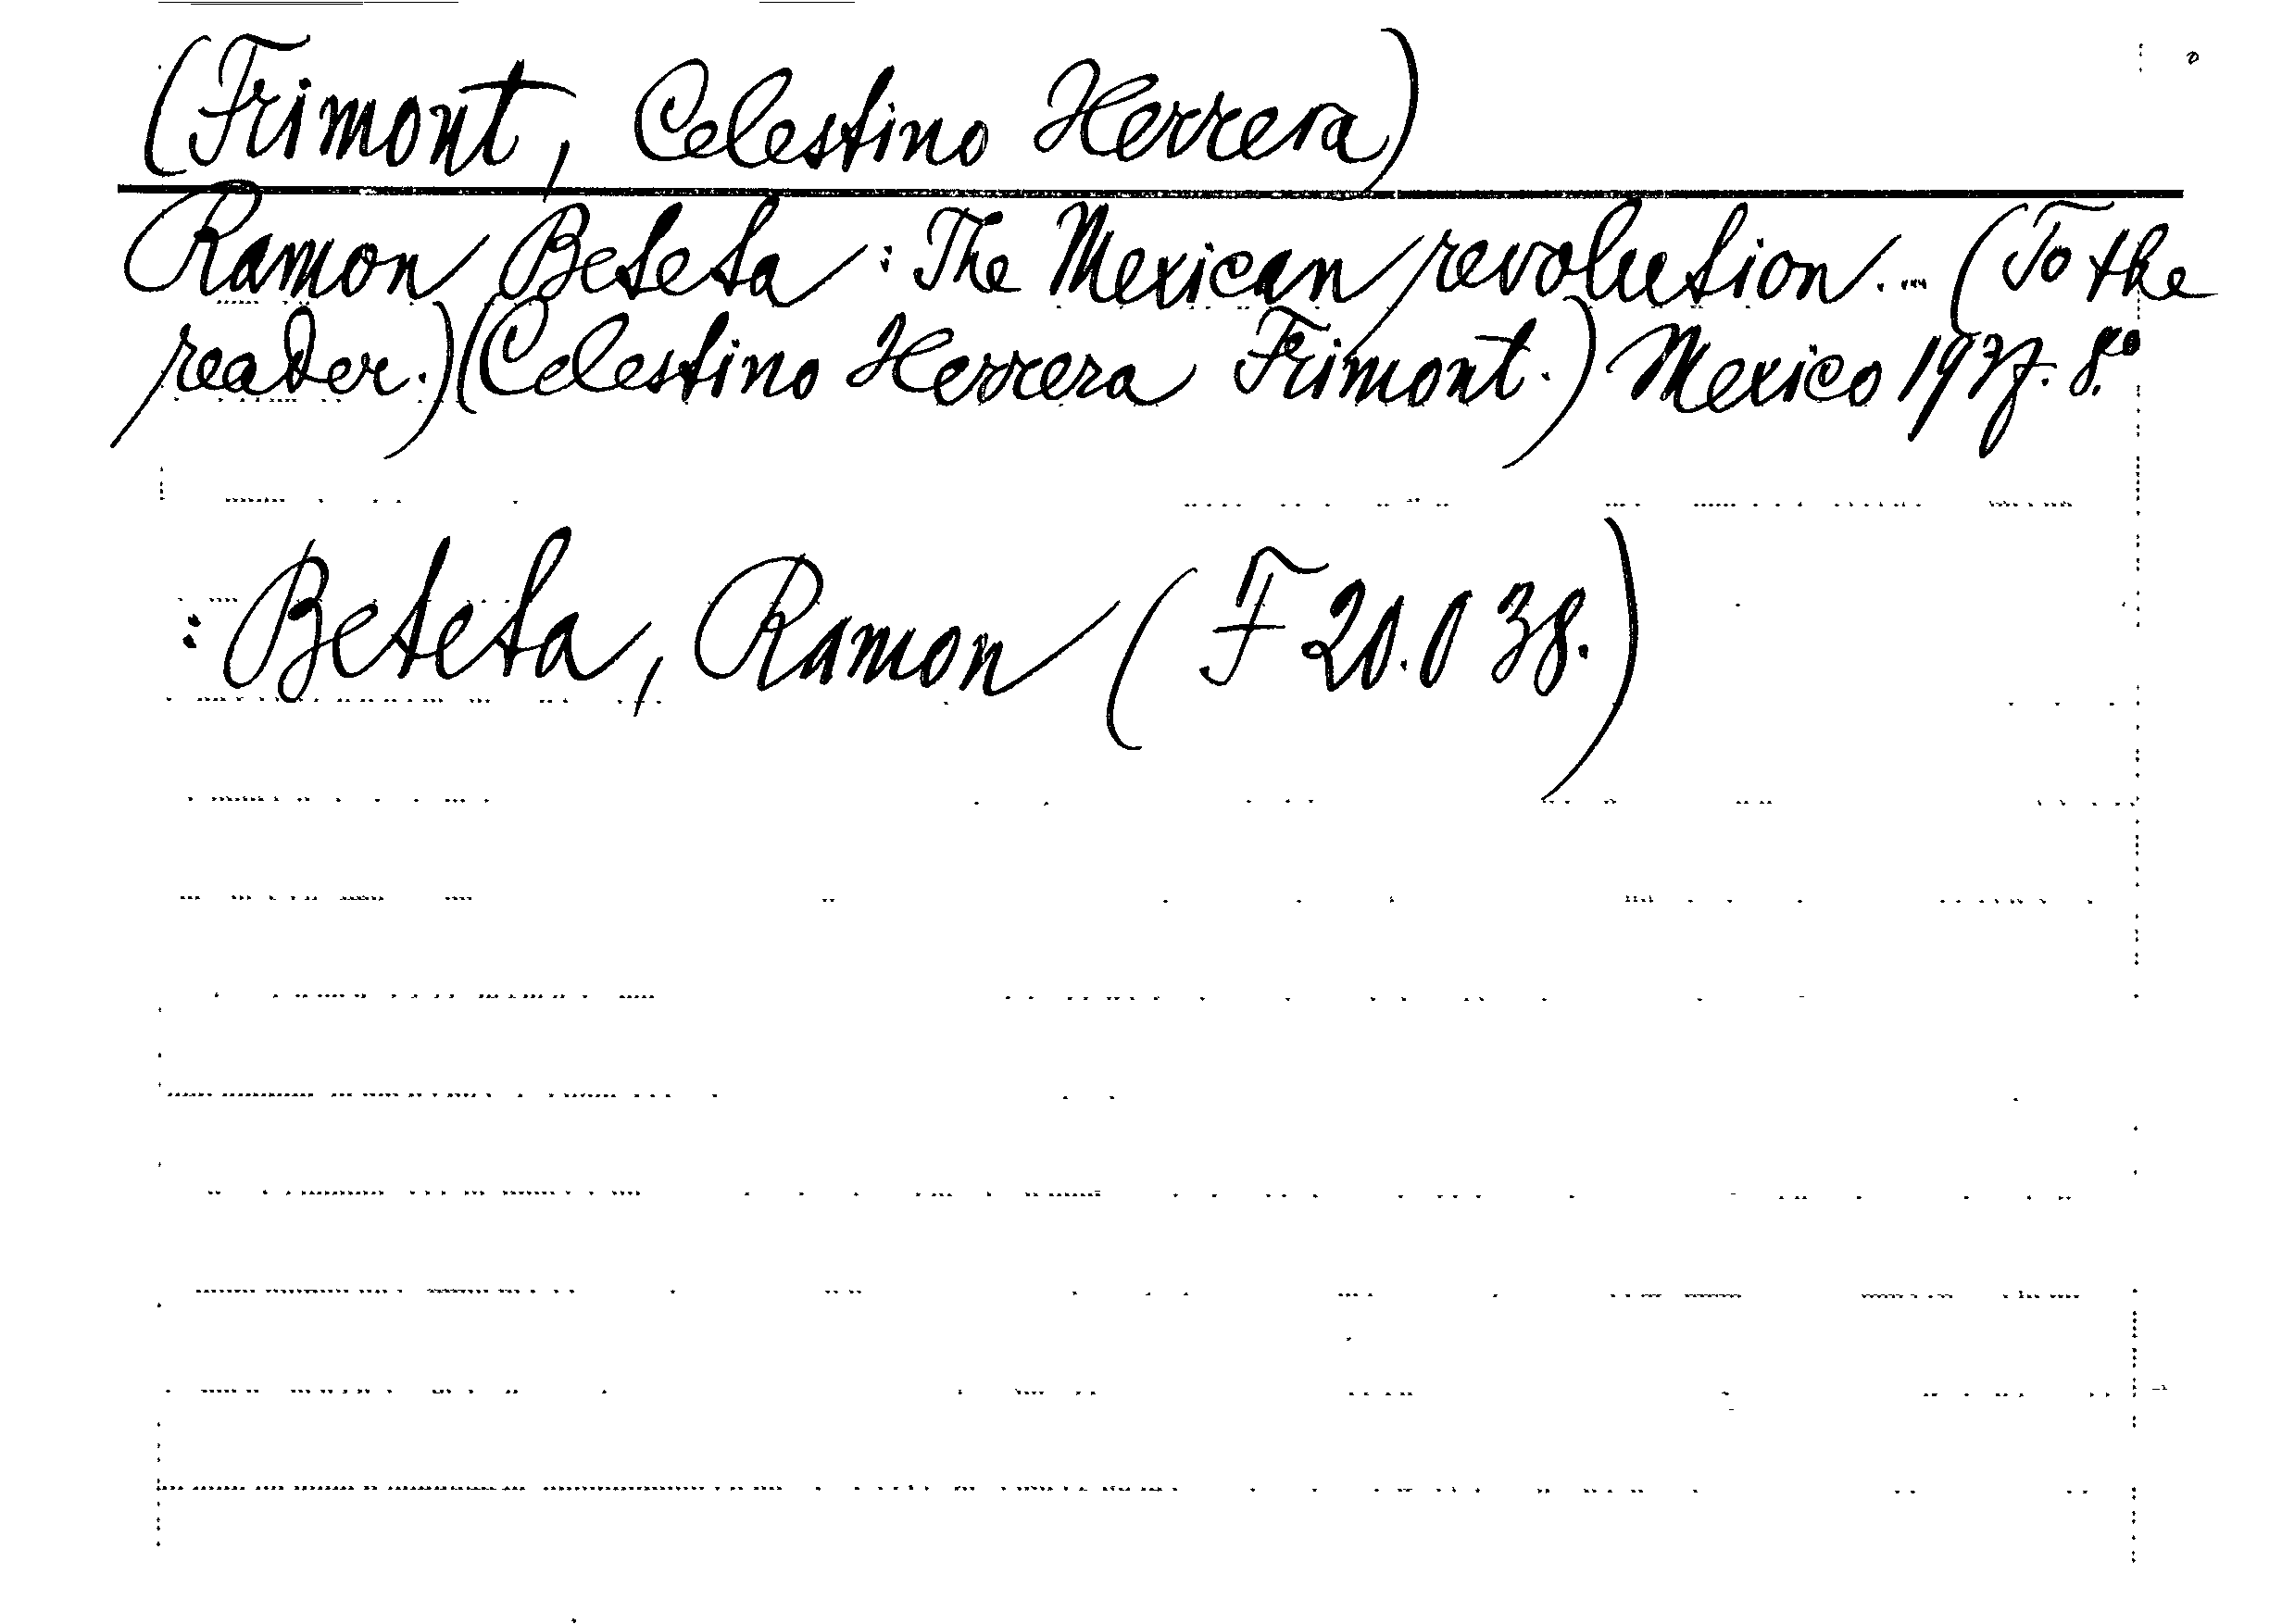 (Frimont, Celestino Herrera)
Ramon Beteta: The Mexican revolution... (To the
reader.)(Celestino Herrera Frimont.) Mexico 1937. 8.°
: Beteta, Ramon (F 20.038.)